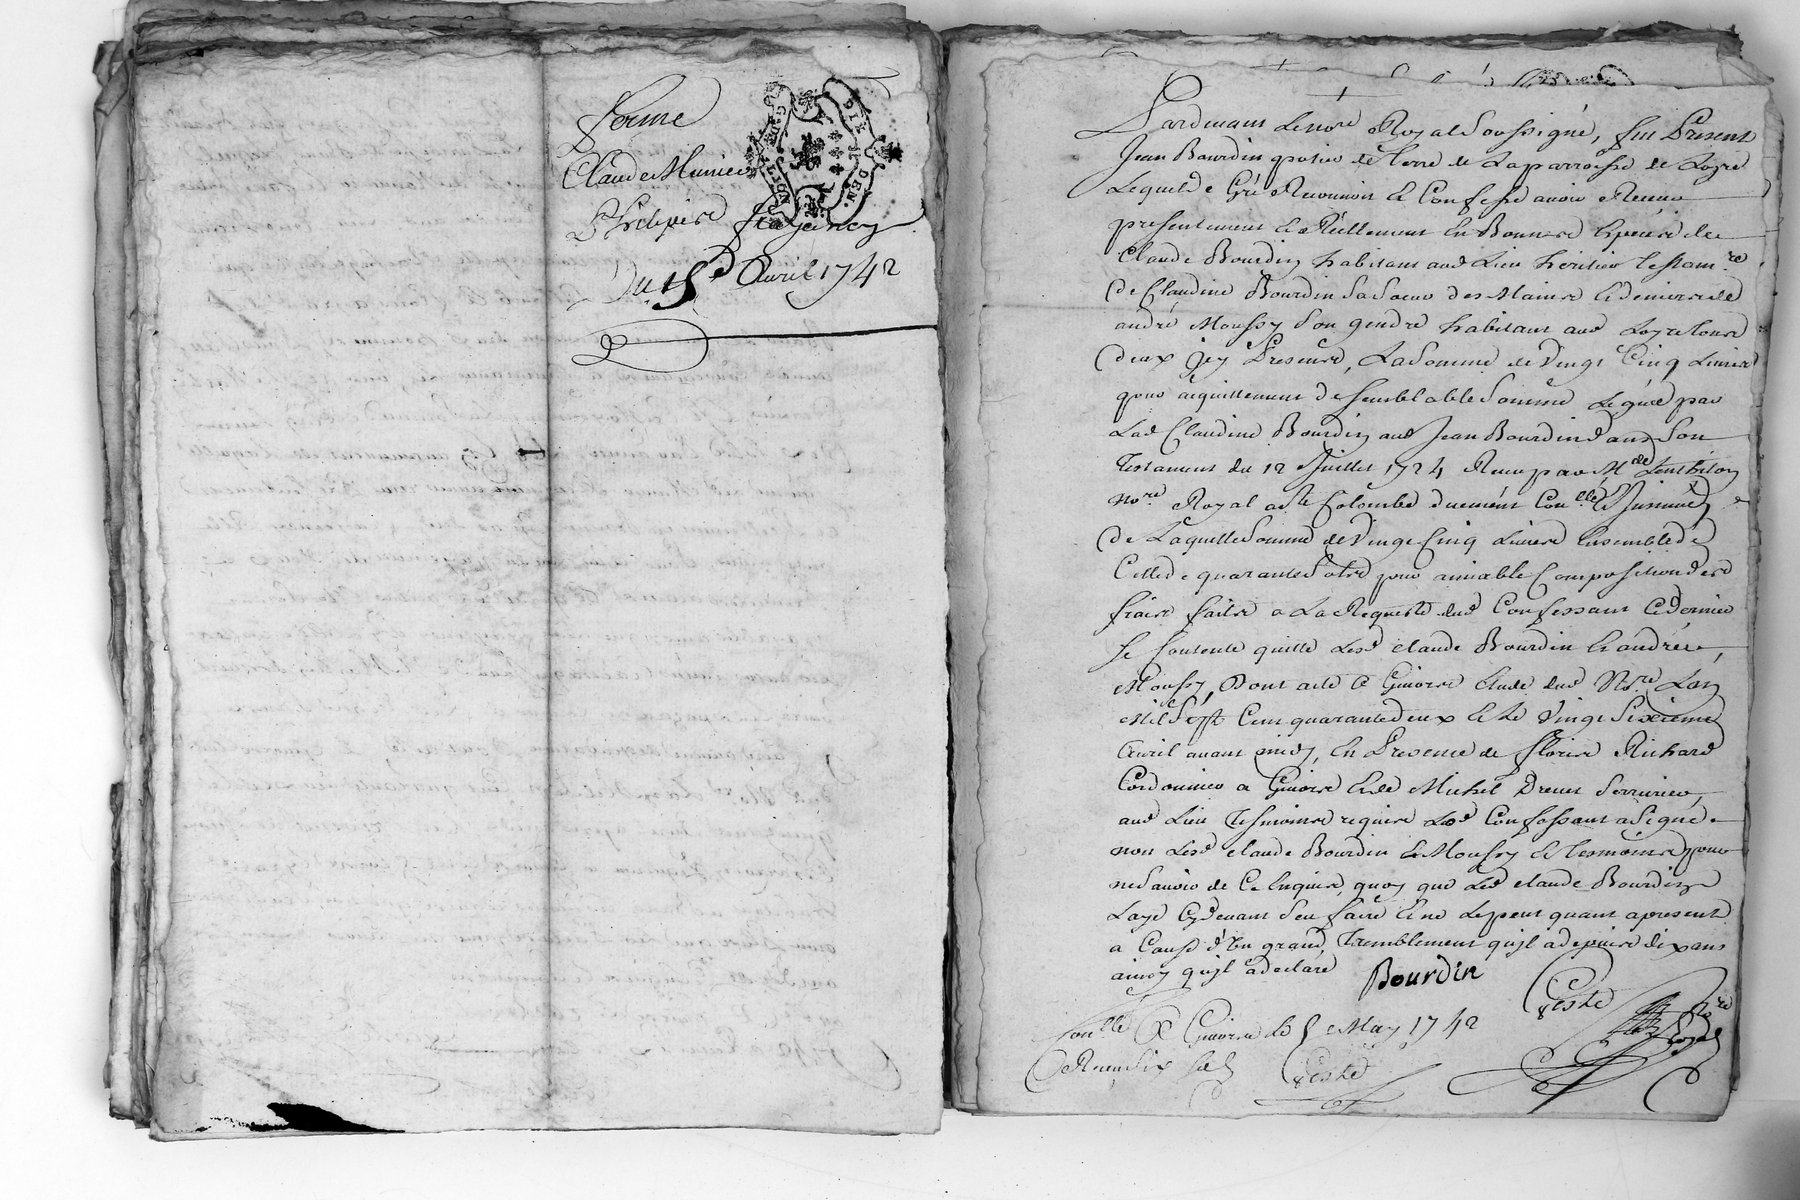 ferme
Claude Munier
Philipe
Du 15e Avril 1742
Pardevant Le nore Royal Soussigné, fut Present
Jean Bourdin potier de Terre de La parroisse de Loyre
Lequel de Gré Reconnoit et Confesse avoir Receu
presentement et Réellement En Bonnes Especes de
Claude Bourdin habitant aud Lieu heritier testamre
De Claudine Bourdin Sa Soeur des Mains et deniers de
andré Moussy Son gendre habitant aud Loyre tous
deux icy Presents, La Somme de Vingt Cinq Livres
pour aquittement de semblable Somme Leguée par
Lad Claudine Bourdin aud Jean Bourdin dans Son
Testament du 12 Juillet 1724 Receu par Me de
nore Royal a Ste Colombe duement Conllé et Jnsinué
De Laquelle Somme de Vingt Cinq Livres Ensemble de
Celle de quarante Sols pour amiable Composition des
frais faits a La Requeste dud Confessant Ce dernier
Se Contente quitte Lesd Claude Bourdin et andré
Moussy, Dont acte a Givors Etude dud Nore Lan
Mil Sept Cent quarante deux et Le Vingt Sixieme
Avril avant midy, En Presence de Floris Richard
Cordonnier a Givors et de Michel Drevet Serrurier
aud Lieu Tesmoins requis Led Confessant a Signé
non Lesd Claude Bourdin et Moussy et tesmoins pour
ne Savoir de Ce Enquis, quoy que Led Claude Bourdin
Laye Cy devant Seu faire et ne Le peut quant a present
a Cause d'Un grand Tremblement qu'jl a depuis dix ans
ainsy qu'jl a declaré
Bourdin
Conllé A Givors Le 5 May 1742
Receu Six Sols